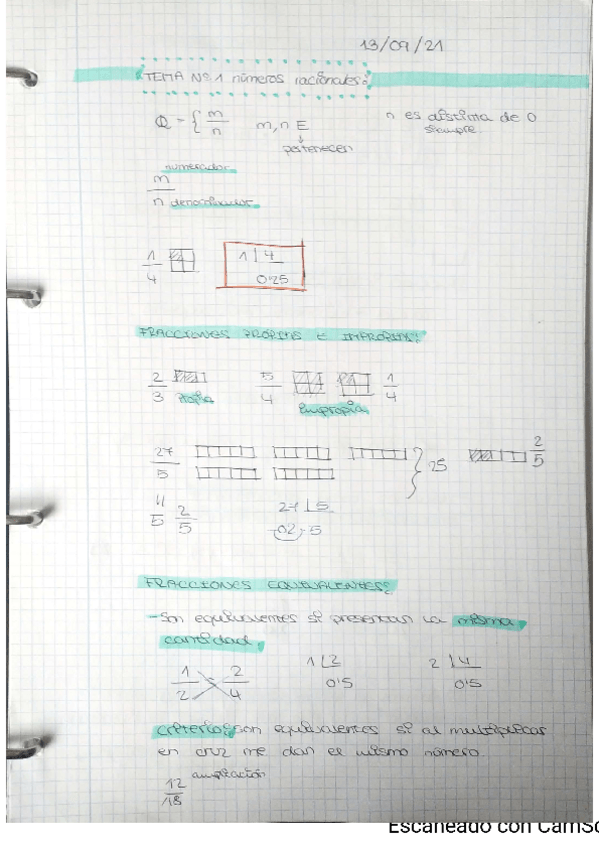 13/09/21
TEMA Nº1 números racionales:
Q = { m/n m, n E n es distinta de 0 siempre.
pertenecen
numerador
m
n denominador
1/4 1 | 4
0'25
FRACCIONES PROPIAS E IMPROPIAS:
2/3 Propia 5/4 1/4
Impropia
27/5 } 25 2/5
2/5 27 | 5
02 5
FRACCIONES EQUIVALENTES:
-Son equivalentes si presentan la misma
cantidad.
1/2 2/4 1 | 2 2 | 4
0'5 0'5
criterio: son equivalentes si al multiplicar
en cruz me dan el mismo número.
ampliación
12/18
Escaneado con CamSc